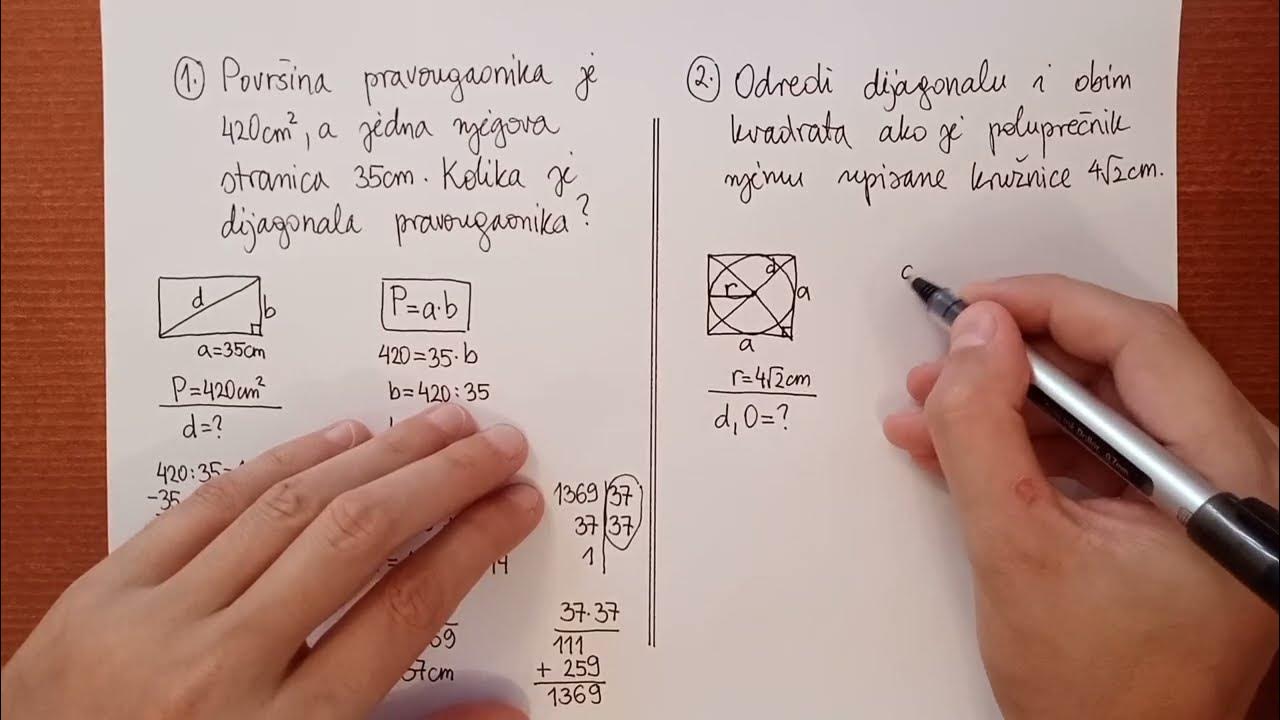 1. Površina pravougaonika je
420cm², a jedna njegova
stranica 35cm. Kolika je
dijagonala pravougaonika?
d
b
a=35cm
P=420cm²
d=?
P=a·b
420=35·b
b=420:35
420:35=
-35
1369 37
37 37
1
14
69
37cm
37·37
111
+ 259
1369
2. Odredi dijagonalu i obim
kvadrata ako je poluprečnik
njemu upisane kružnice 4√2cm.
d
r
a
a
r=4√2cm
d,O=?